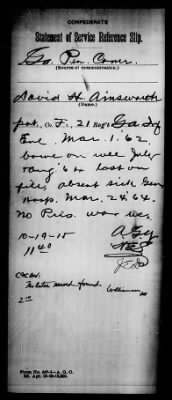 CONFEDERATE
Statement of Service Reference Slip.
Ga. Pen. Comr.
(Source of communication.)
David H Ainsworth
(Name.)
pvt., Co. F, 21 Reg't Ga Inf
Enl. Mar. 1 '62
borne on roll July
& Aug '64 last on
file, absent sick Gen
Hosp. Mar. 24 '64.
No Pris. war rec.
10-19-15
11 40
No later record found.
2
Form No. 467-1—A. G. O.